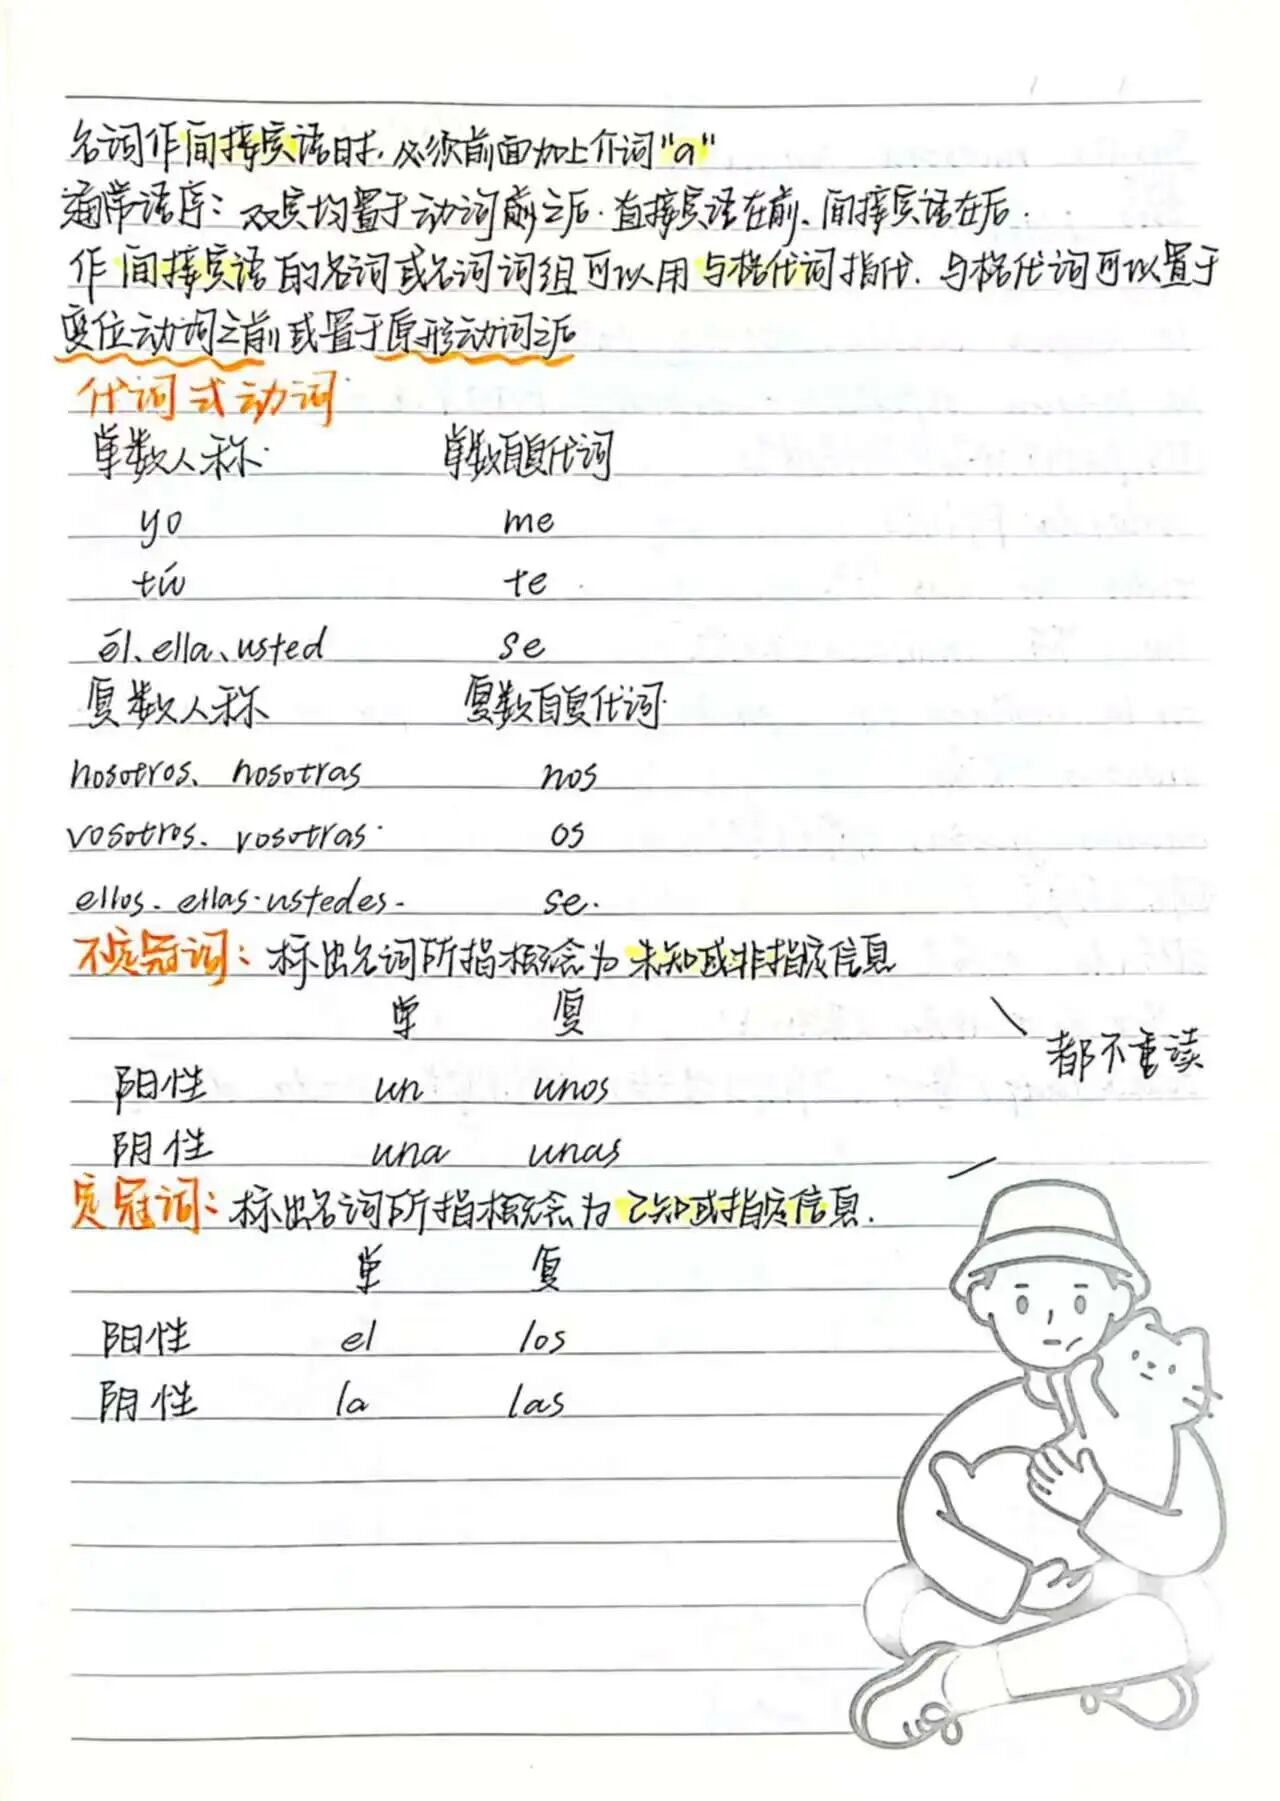 名词作间接宾语时，必须前面加上介词"a"
通常语序：双宾均置于动词前之后．直接宾语在前、间接宾语在后．
作间接宾语的名词或名词词组可以用与格代词指代．与格代词可以置于
变位动词之前或置于原形动词之后
代词式动词
单数人称 单数自复代词
yo me
tú te
él、ella、usted se
复数人称 复数自复代词
nosotros、nosotras nos
vosotros、vosotras os
ellos、ellas、ustedes se
不定冠词：标出名词所指概念为未知或非指定信息
单 复
都不重读
阳性 un unos
阴性 una unas
定冠词：标出名词所指概念为已知或指定信息．
单 复
阳性 el los
阴性 la las